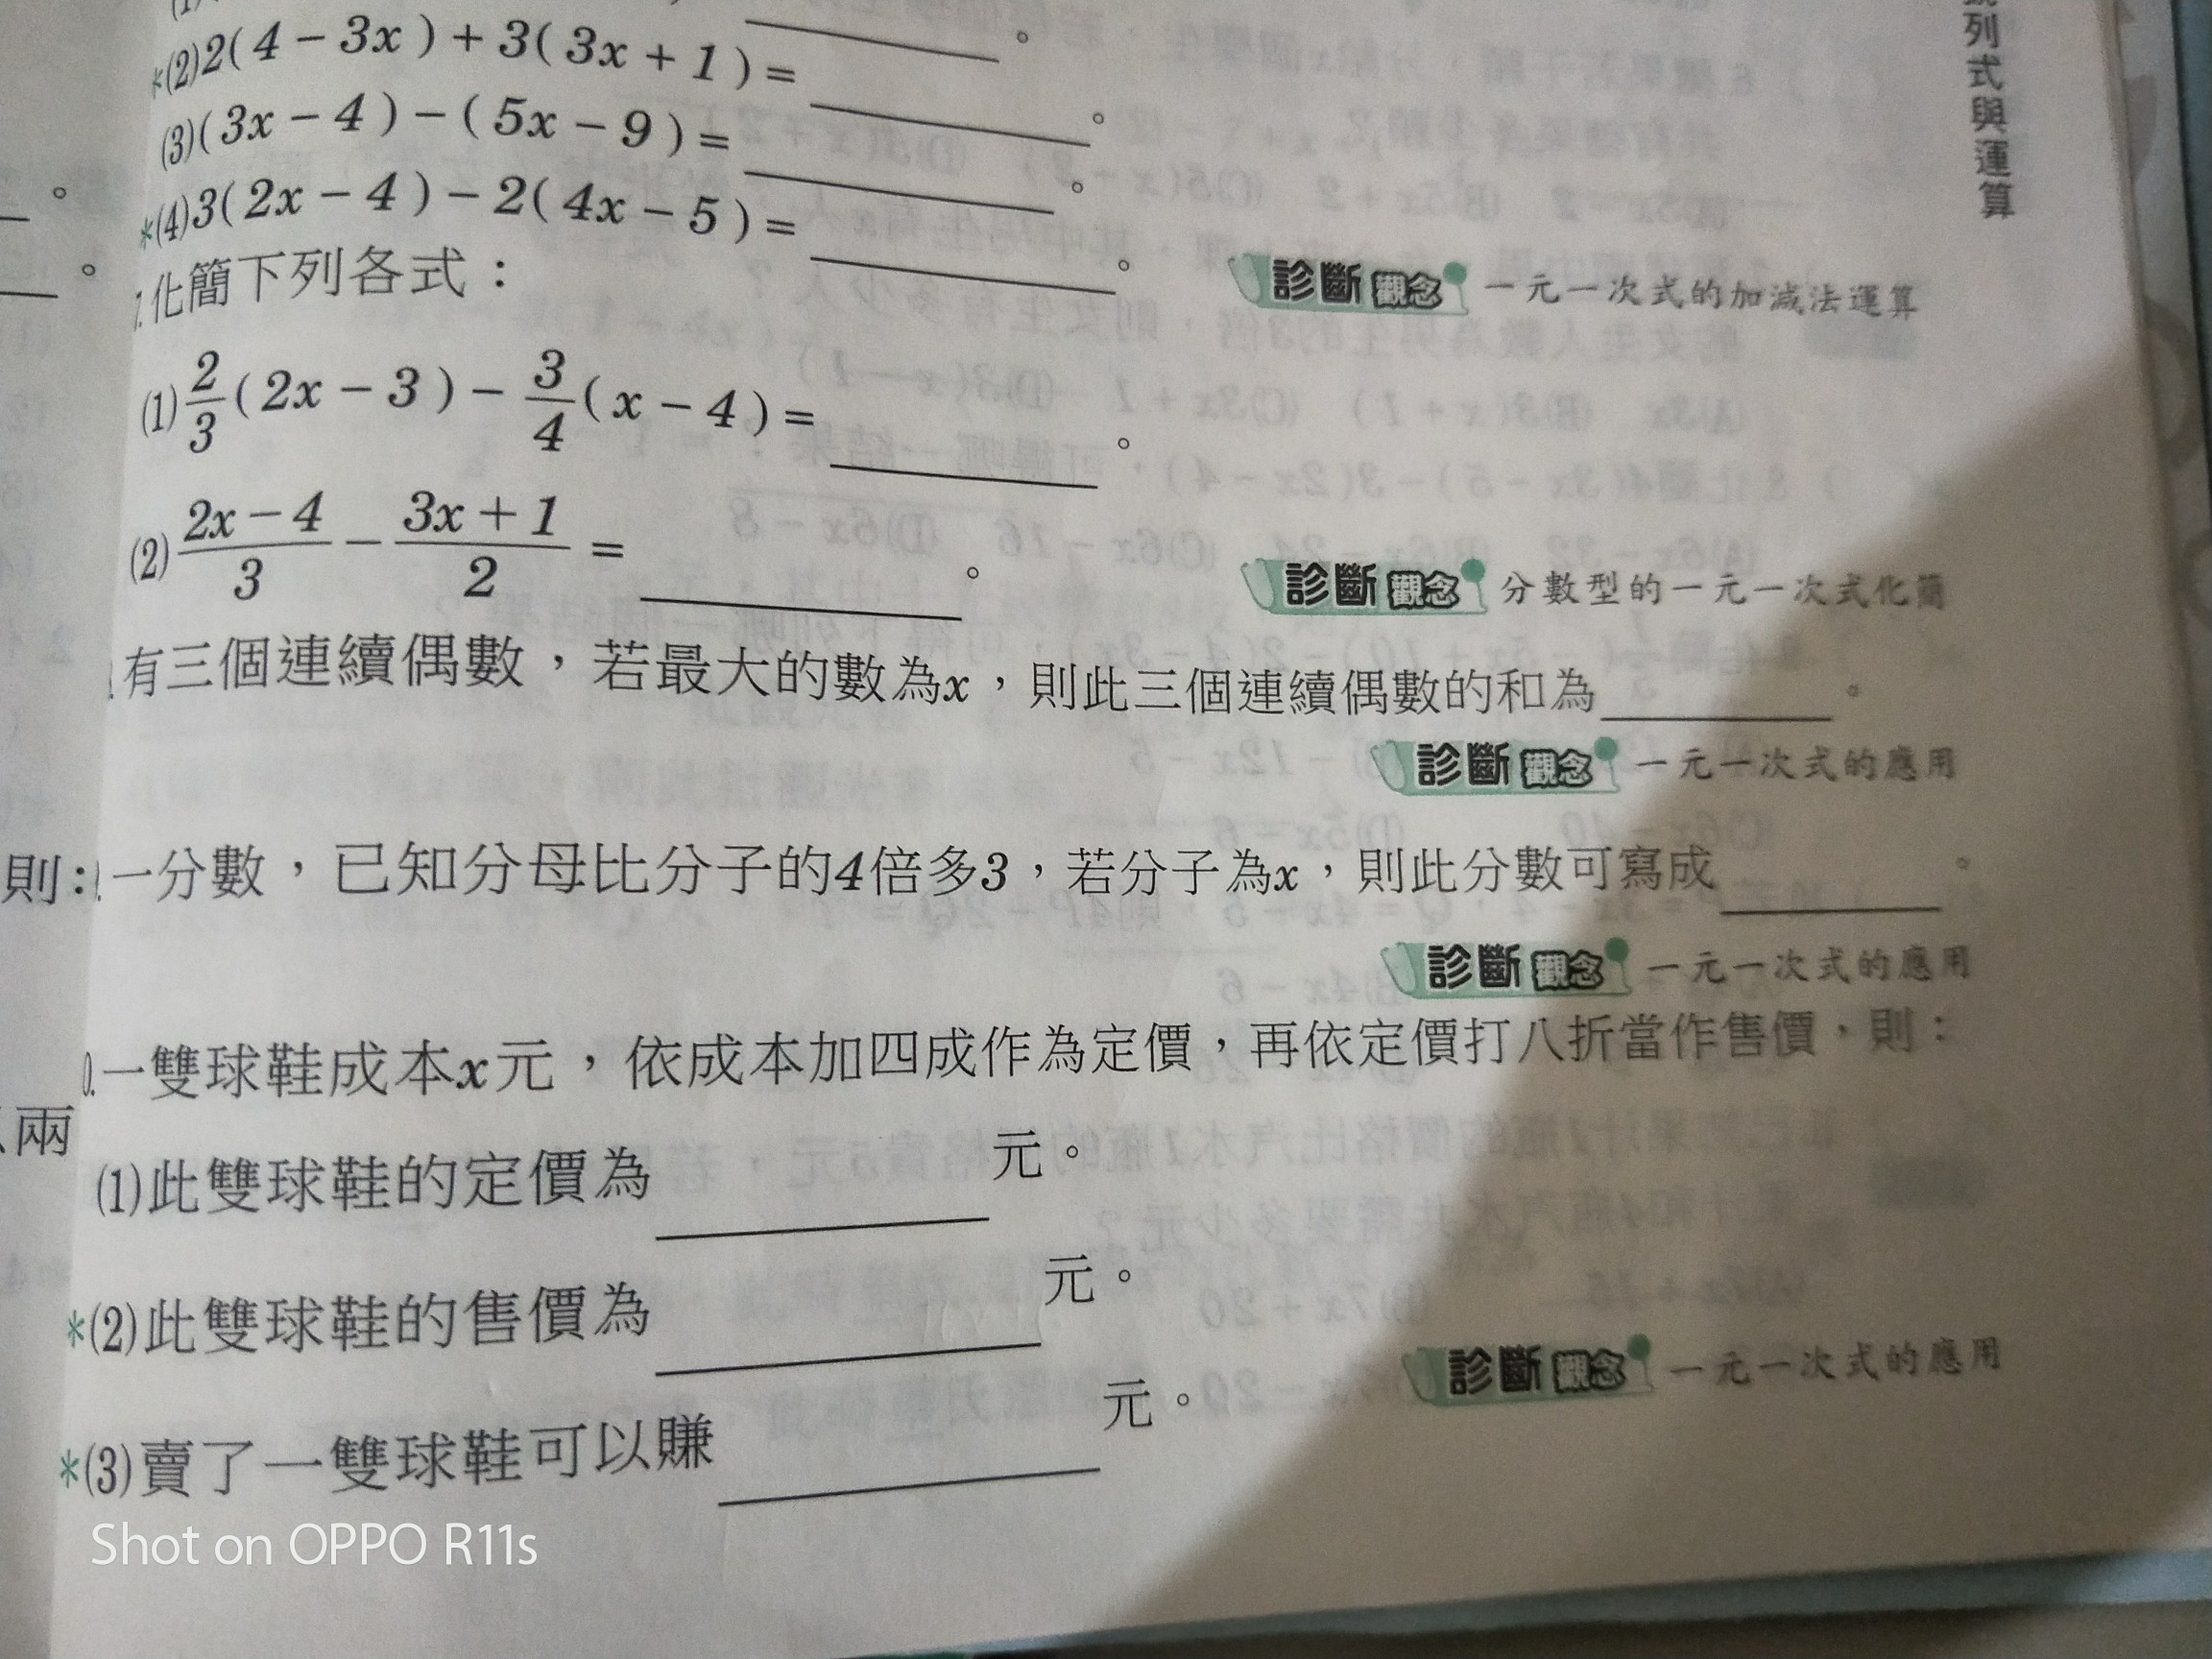 *(2)2(4-3x)+3(3x+1)=________。
(3)(3x-4)-(5x-9)=________。
*(4)3(2x-4)-2(4x-5)=________。
診斷觀念 一元一次式的加減法運算
化簡下列各式：
(1)2/3(2x-3)-3/4(x-4)=________。
(2)(2x-4)/3-(3x+1)/2=________。
診斷觀念 分數型的一元一次式化簡
有三個連續偶數，若最大的數為x，則此三個連續偶數的和為________。
診斷觀念 一元一次式的應用
一分數，已知分母比分子的4倍多3，若分子為x，則此分數可寫成________。
診斷觀念 一元一次式的應用
0.一雙球鞋成本x元，依成本加四成作為定價，再依定價打八折當作售價，則：
(1)此雙球鞋的定價為________元。
*(2)此雙球鞋的售價為________元。
*(3)賣了一雙球鞋可以賺________元。
診斷觀念 一元一次式的應用
列式與運算
則：
兩
Shot on OPPO R11s